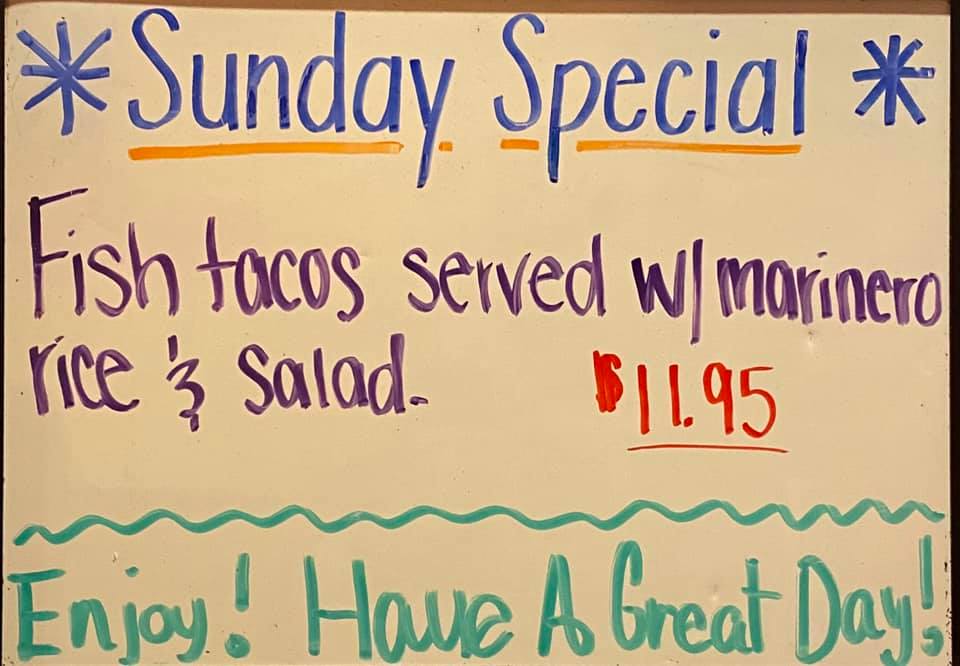 * Sunday Special *
Fish tacos served w/ marinero
rice & salad.
$11.95
Enjoy! Have A Great Day!